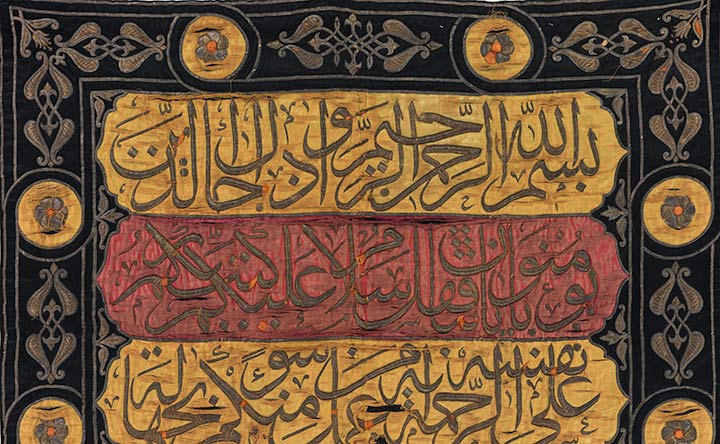 بسم الله الرحمن الرحيم واذا جاك الذين
يومنون باياتنا فقل سلام عليكم كتب ربكم
على نفسه الرحمة انه من عمل منكم سوءً بجهالة